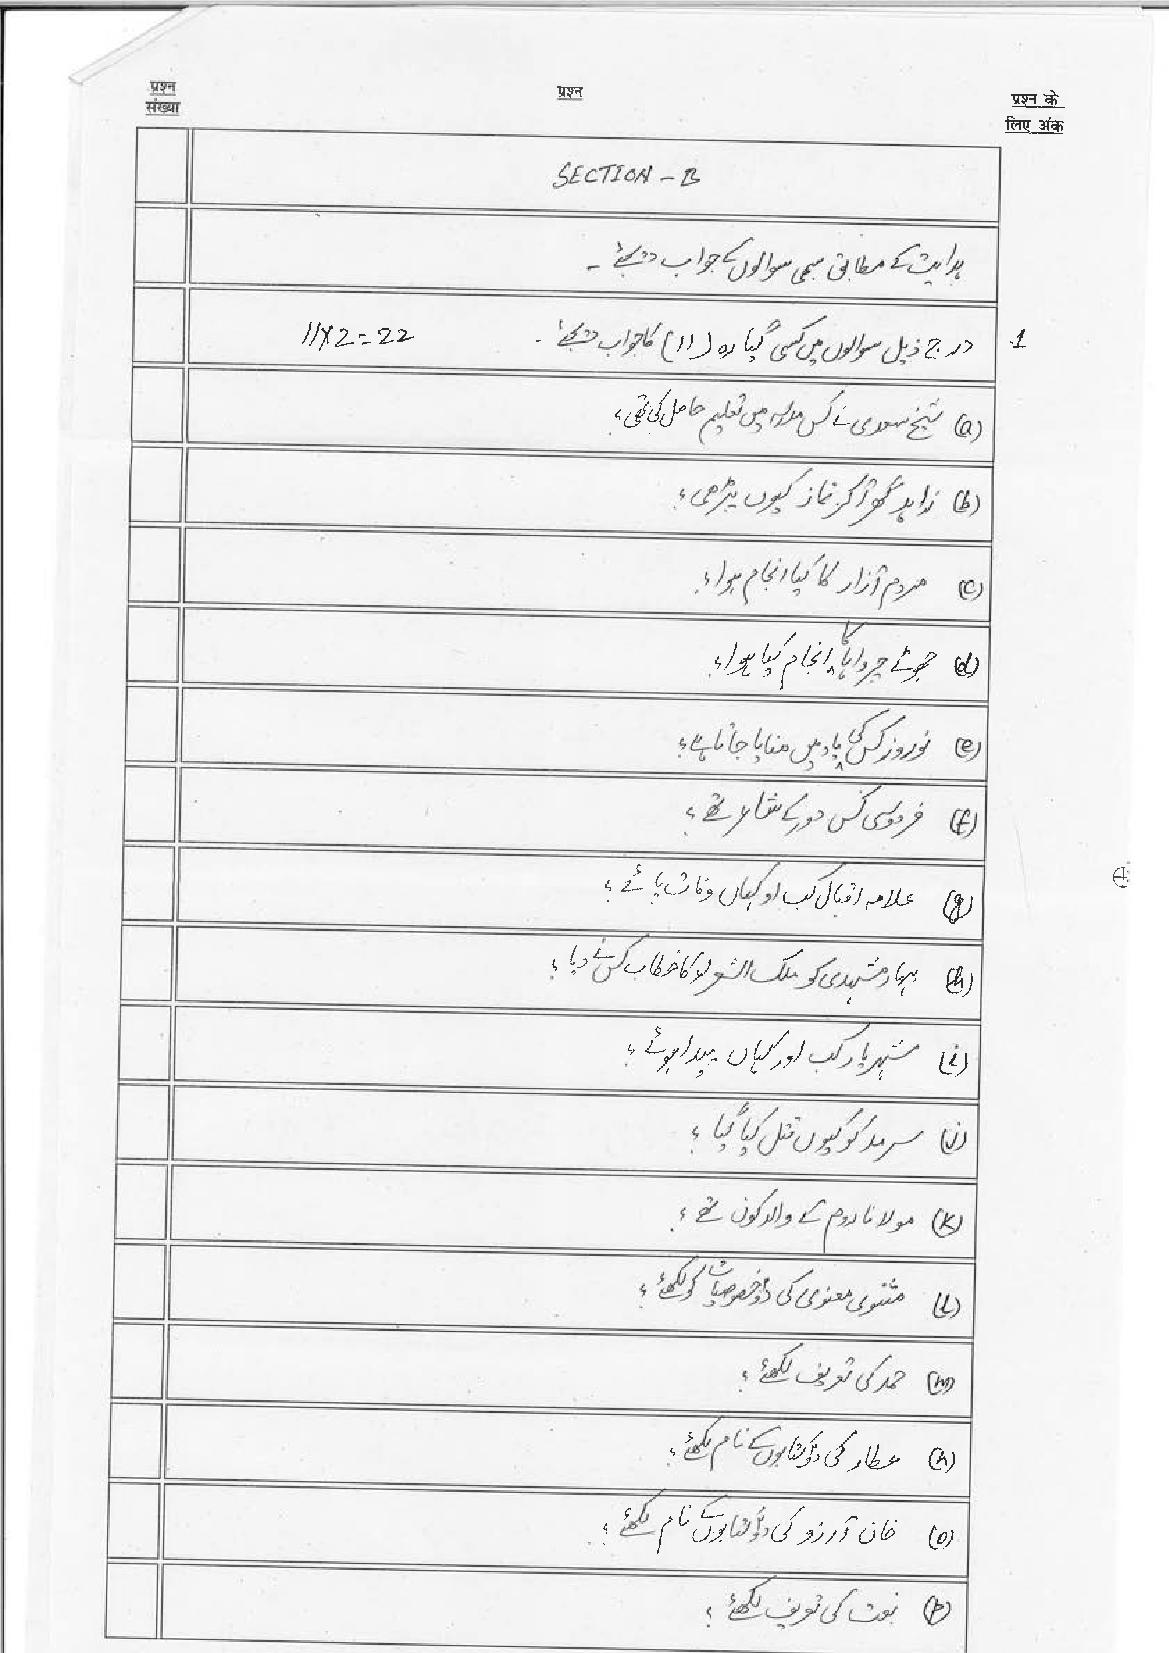 प्रश्न संख्या
प्रश्न
प्रश्न के लिए अंक
SECTION - B
ہدایت کے مطابق سبھی سوالوں کے جواب دیجئے ۔
1. درج ذیل سوالوں میں کسی گیارہ (11) کا جواب دیجئے ۔ 11x2=22
(a) شیخ سعدی نے کس مدرسہ میں تعلیم حاصل کی تھی ؟
(b) زاہد گھر آکر نماز کیوں پڑھی ؟
(c) مردم آزار کا کیا انجام ہوا ؟
(d) جھوٹے چرواہا کا انجام کیا ہوا ؟
(e) نوروز کس کی یاد میں منایا جاتا ہے ؟
(f) فردوسی کس دور کے شاعر تھے ؟
(g) علامہ اقبال کب او کہاں وفات پائے ؟
(h) بہار مشہدی کو ملک الشعراء کا خطاب کس نے دیا ؟
(i) شہریار کب اور کہاں پیدا ہوئے ؟
(j) سرمد کو کیوں قتل کیا گیا ؟
(k) مولانا روم کے والد کون تھے ؟
(l) مثنوی معنوی کی دو خصوصیات کو لکھئے ؟
(m) حمد کی تعریف لکھئے ؟
(n) عطار کی دو کتابوں کے نام لکھئے ؟
(o) خان آرزو کی دو کتابوں کے نام لکھئے ؟
(p) نعت کی تعریف لکھئے ؟